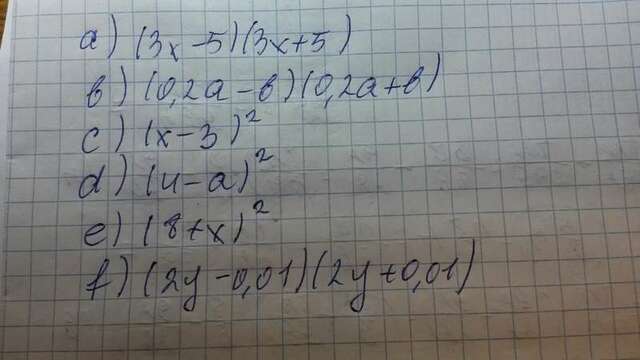 a) (3x-5)(3x+5)
b) (0,2a-b)(0,2a+b)
c) (x-3)²
d) (4-a)²
e) (8+x)²
f) (2y-0,01)(2y+0,01)